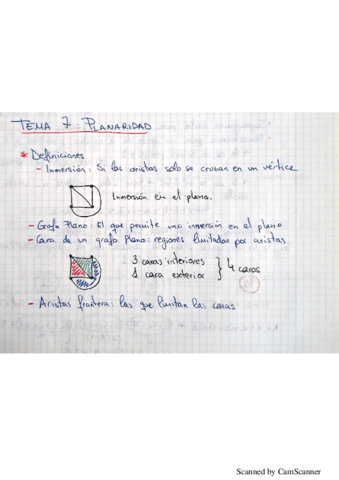 TEMA 7: PLANARIDAD
* Definiciones
- Inmersión: Si las aristas solo se cruzan en un vértice
Inmersión en el plano.
- Grafo Plano: El que permite una inmersión en el plano
- Cara de un grafo Plano: regiones limitadas por aristas
3 caras interiores
1 cara exterior
} 4 caras
- Aristas frontera: las que limitan las caras
Scanned by CamScanner